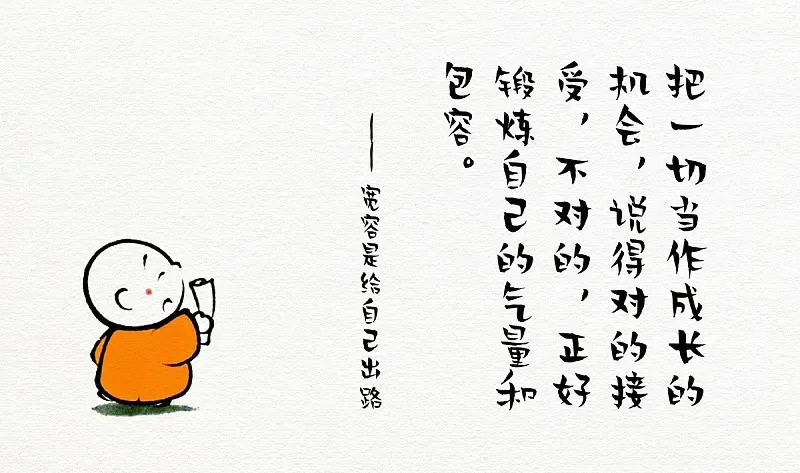 把一切当作成长的
机会，说得对的接
受，不对的，正好
锻炼自己的气量和
包容。
——宽容是给自己出路